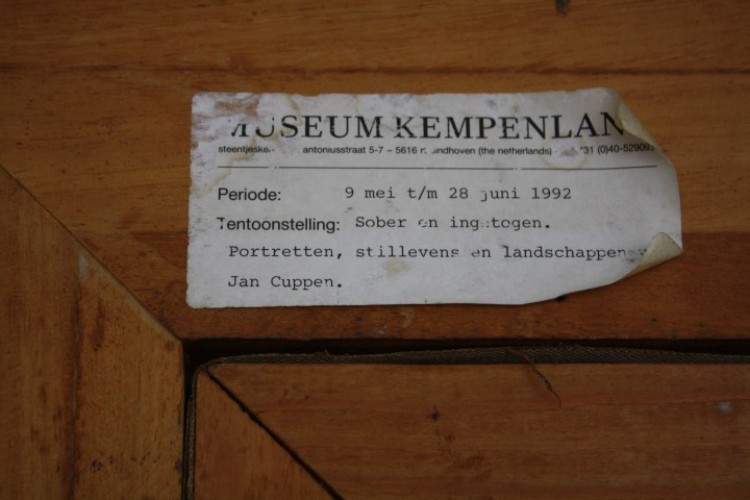 MUSEUM KEMPENLAN
steentjeske antoniusstraat 5-7 – 5616 r. indhoven (the netherlands) 31 (0)40-529093
Periode: 9 mei t/m 28 juni 1992
Tentoonstelling: Sober en ingetogen.
Portretten, stillevens en landschappen
Jan Cuppen.